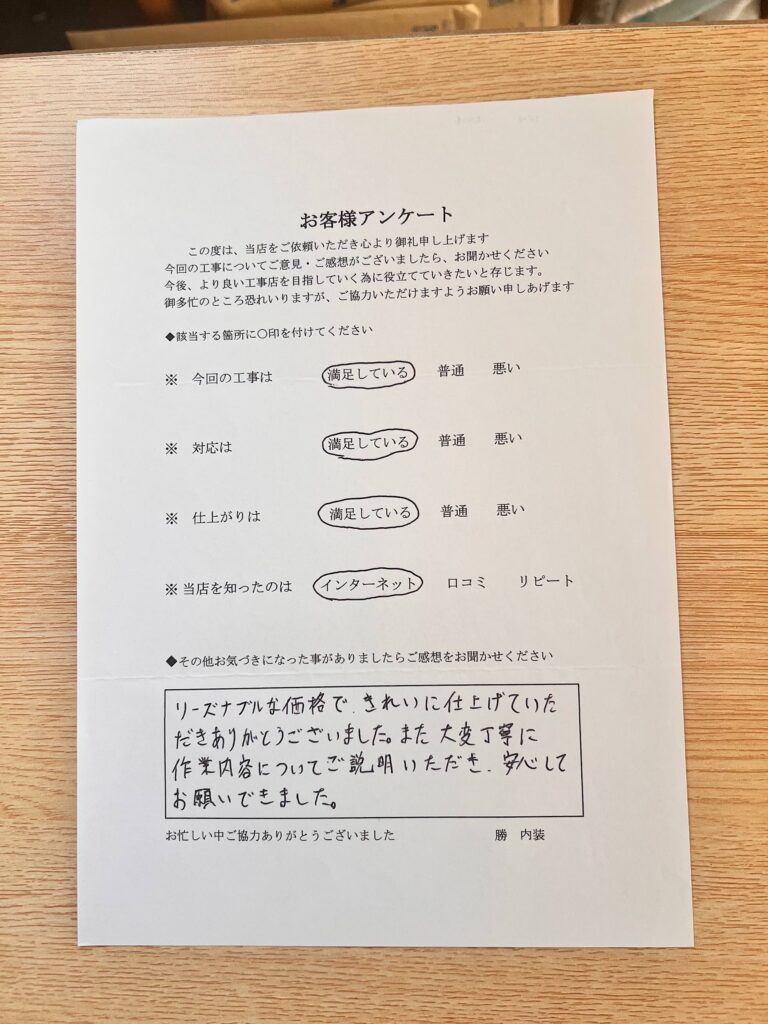 お客様アンケート
この度は、当店をご依頼いただき心より御礼申し上げます
今回の工事についてご意見・ご感想がございましたら、お聞かせください
今後、より良い工事店を目指していく為に役立てていきたいと存じます。
御多忙のところ恐れいりますが、ご協力いただけますようお願い申しあげます
◆該当する箇所に〇印を付けてください
※ 今回の工事は 満足している 普通 悪い
※ 対応は 満足している 普通 悪い
※ 仕上がりは 満足している 普通 悪い
※ 当店を知ったのは インターネット 口コミ リピート
◆その他お気づきになった事がありましたらご感想をお聞かせください
リーズナブルな価格で、きれいに仕上げていた
だきありがとうございました。また大変丁寧に
作業内容についてご説明いただき、安心して
お願いできました。
お忙しい中ご協力ありがとうございました 勝 内装